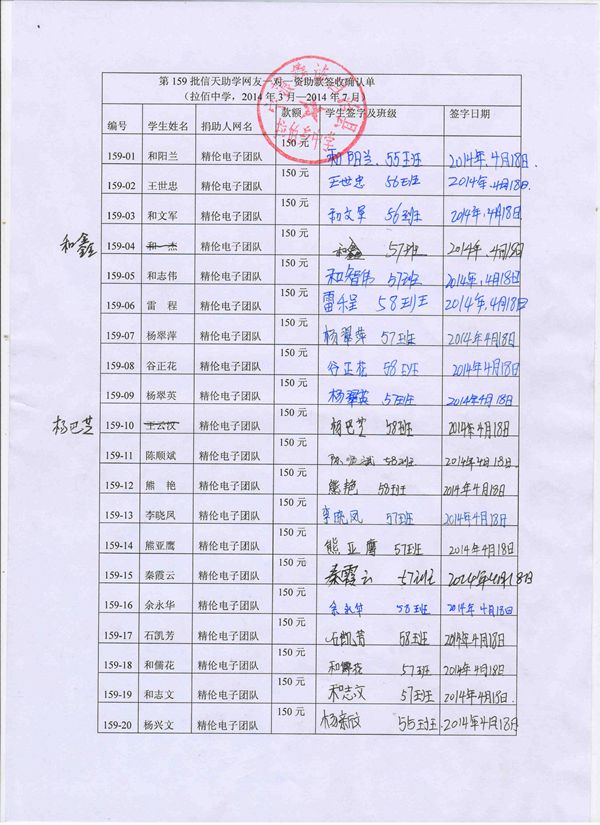 第 159 批信天助学网友一对一资助款签收确认单
(拉佰中学，2014 年 3 月—2014 年 7 月)
编号 学生姓名 捐助人网名 款额 学生签字及班级 签字日期
159-01 和阳兰 精伦电子团队 150 元 和阳兰、55班 2014年.4月18日.
159-02 王世忠 精伦电子团队 150 元 王世忠 56班 2014年.4月18日.
159-03 和文军 精伦电子团队 150 元 和文军 56班 2014年.4月18日
和鑫 159-04 和一杰 精伦电子团队 150 元 和鑫 57班 2014年.4月18日
159-05 和志伟 精伦电子团队 150 元 和智伟 57班 2014年.4月18日
159-06 雷 程 精伦电子团队 150 元 雷程 58班 2014年.4月18日
159-07 杨翠萍 精伦电子团队 150 元 杨翠萍 57班 2014年4月18日
159-08 谷正花 精伦电子团队 150 元 谷正花 58班 2014年4月18日
159-09 杨翠英 精伦电子团队 150 元 杨翠英 57班 2014年4月18日
杨巴芝 159-10 精伦电子团队 150 元 杨巴芝 58班 2014年4月18日
159-11 陈顺斌 精伦电子团队 150 元 陈顺斌 58班 2014年4月18日
159-12 熊 艳 精伦电子团队 150 元 熊艳 58班 2014年4月18日
159-13 李晓凤 精伦电子团队 150 元 李晓凤 57班 2014年4月18日
159-14 熊亚鹰 精伦电子团队 150 元 熊亚鹰 57班 2014年4月18日
159-15 秦霞云 精伦电子团队 150 元 秦霞云 57班 2014年4月18日
159-16 余永华 精伦电子团队 150 元 余永华 58班 2014年4月18日
159-17 石凯芳 精伦电子团队 150 元 石凯芳 58班 2014年4月18日
159-18 和儒花 精伦电子团队 150 元 和儒花 57班 2014年4月18日
159-19 和志文 精伦电子团队 150 元 和志文 57班 2014年4月18日
159-20 杨兴文 精伦电子团队 150 元 55班 2014年4月18日